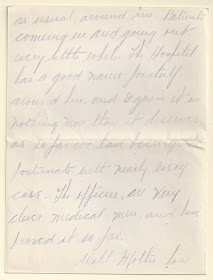 as usual, around here. Patients
comeing in and going out
every little while. The Hospital
has a good name for itself
around here, and again it is
nothing more than it deserves
as so far we have being very
fortunate with nearly every
case. The officers, are very
clever medical men, and have
proved it so far.
Well Mother, I'm